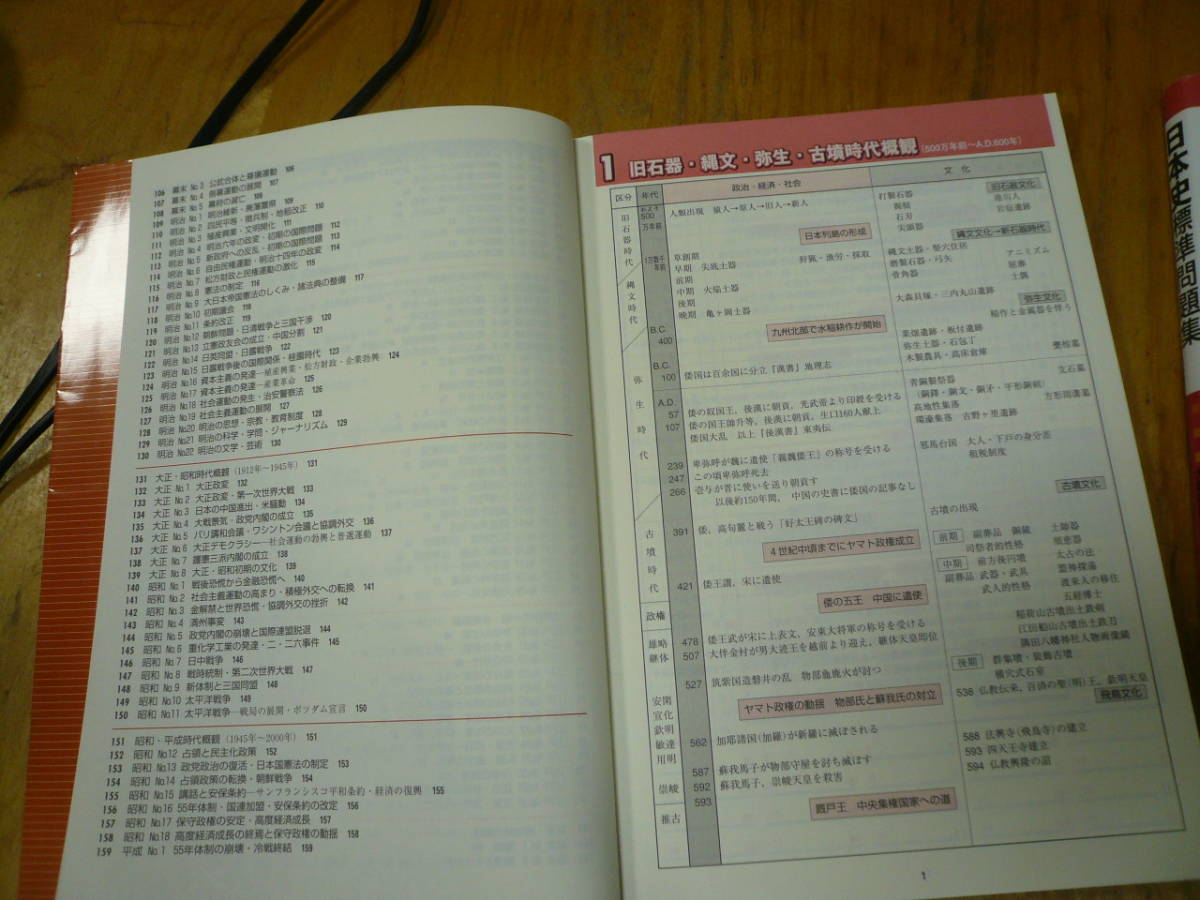 106 幕末 No.3 公武合体と尊攘運動 106
107 幕末 No.4 倒幕運動の展開 107
108 幕末 No.5 幕府の滅亡 108
109 明治 No.1 明治維新・廃藩置県 109
110 明治 No.2 四民平等・徴兵制・地租改正 110
111 明治 No.3 殖産興業・文明開化 111
112 明治 No.4 明治六年の政変・初期の国際問題 112
113 明治 No.5 新政府への反乱・初期の国際問題 113
114 明治 No.6 自由民権運動・明治十四年の政変 114
115 明治 No.7 松方財政と民権運動の激化 115
116 明治 No.8 憲法の制定 116
117 明治 No.9 大日本帝国憲法のしくみ・諸法典の整備 117
118 明治 No.10 初期議会 118
119 明治 No.11 条約改正 119
120 明治 No.12 朝鮮問題・日清戦争と三国干渉 120
121 明治 No.13 立憲政友会の成立・中国分割 121
122 明治 No.14 日英同盟・日露戦争 122
123 明治 No.15 日露戦争後の国際関係・桂園時代 123
124 明治 No.16 資本主義の発達―殖産興業・松方財政・企業勃興 124
125 明治 No.17 資本主義の発達―産業革命 125
126 明治 No.18 社会運動の発生・治安警察法 126
127 明治 No.19 社会主義運動の展開 127
128 明治 No.20 明治の思想・宗教・教育制度 128
129 明治 No.21 明治の科学・学問・ジャーナリズム 129
130 明治 No.22 明治の文学・芸術 130
131 大正・昭和時代概観(1912年～1945年) 131
132 大正 No.1 大正政変 132
133 大正 No.2 大正政変・第一次世界大戦 133
134 大正 No.3 日本の中国進出・米騒動 134
135 大正 No.4 大戦景気・政党内閣の成立 135
136 大正 No.5 パリ講和会議・ワシントン会議と協調外交 136
137 大正 No.6 大正デモクラシー―社会運動の勃興と普選運動 137
138 大正 No.7 護憲三派内閣の成立 138
139 大正 No.8 大正・昭和初期の文化 139
140 昭和 No.1 戦後恐慌から金融恐慌へ 140
141 昭和 No.2 社会主義運動の高まり・積極外交への転換 141
142 昭和 No.3 金解禁と世界恐慌・協調外交の挫折 142
143 昭和 No.4 満州事変 143
144 昭和 No.5 政党内閣の崩壊と国際連盟脱退 144
145 昭和 No.6 重化学工業の発達・二・二六事件 145
146 昭和 No.7 日中戦争 146
147 昭和 No.8 戦時統制・第二次世界大戦 147
148 昭和 No.9 新体制と三国同盟 148
149 昭和 No.10 太平洋戦争 149
150 昭和 No.11 太平洋戦争―戦局の展開・ポツダム宣言 150
151 昭和・平成時代概観(1945年～2000年) 151
152 昭和 No.12 占領と民主化政策 152
153 昭和 No.13 政党政治の復活・日本国憲法の制定 153
154 昭和 No.14 占領政策の転換・朝鮮戦争 154
155 昭和 No.15 講話と安保条約―サンフランシスコ平和条約・経済の復興 155
156 昭和 No.16 55年体制・国連加盟・安保条約の改定 156
157 昭和 No.17 保守政権の安定・高度経済成長 157
158 昭和 No.18 高度経済成長の終焉と保守政権の動揺 158
159 平成 No.1 55年体制の崩壊・冷戦終結 159
1 旧石器・縄文・弥生・古墳時代概観(500万年前～A.D.600年)
区分 年代 政治・経済・社会 文化
旧石器時代
およそ500万年前 人類出現 猿人→原人→旧人→新人
日本列島の形成
打製石器 旧石器文化
石刃 岩宿遺跡
尖頭器
縄文文化→新石器時代
縄文時代
1万数千年前 草創期
早期 尖底土器 狩猟・漁労・採取
前期
中期 火焔土器
後期
晩期 亀ヶ岡土器
縄文土器・竪穴住居 アニミズム
磨製石器・弓矢 屈葬
骨角器 土偶
大森貝塚・三内丸山遺跡
B.C. 400 九州北部で水稲耕作が開始
弥生文化
稲作と金属器を伴う
菜畑遺跡・板付遺跡
弥生土器・石包丁
木製農具・高床倉庫 甕棺墓
弥生時代
B.C. 100 倭国は百余国に分立『漢書』地理志
青銅製祭器 支石墓
(銅鐸・銅戈・銅矛・平形銅剣) 方形周溝墓
高地性集落
環濠集落 吉野ヶ里遺跡
A.D. 57 倭の奴国王,後漢に朝貢,光武帝より印綬を受ける
107 倭の国王帥升等,後漢に朝貢,生口160人献上
倭国大乱 以上『後漢書』東夷伝
邪馬台国 大人・下戸の身分差
租税制度
239 卑弥呼が魏に遣使「親魏倭王」の称号を受ける
247 この頃卑弥呼死去
266 壱与が晋に使いを送り朝貢す
以後約150年間,中国の史書に倭国の記事なし
古墳文化
古墳の出現
古墳時代
391 倭,高句麗と戦う「好太王碑の碑文」
4世紀中頃までにヤマト政権成立
前期 副葬品 銅鏡 土師器
司祭者的性格 須恵器
中期 前方後円墳 太占の法
副葬品 武器・武具 盟神探湯
武人的性格 渡来人の移住
五経博士
421 倭王讃,宋に遣使
倭の五王 中国に遣使
稲荷山古墳出土鉄剣
江田船山古墳出土鉄刀
隅田八幡神社人物画像鏡
政権
雄略 478 倭王武が宋に上表文,安東大将軍の称号を受ける
継体 507 大伴金村が男大迹王を越前より迎え,継体天皇即位
527 筑紫国造磐井の乱 物部麁鹿火が討つ
後期 群集墳・装飾古墳
横穴式石室
538 仏教伝来,百済の聖(明)王,欽明天皇
飛鳥文化
ヤマト政権の動揺 物部氏と蘇我氏の対立
安閑
宣化
欽明
敏達
用明
562 加耶諸国(加羅)が新羅に滅ぼされる
587 蘇我馬子が物部守屋を討ち滅ぼす
崇峻 592 蘇我馬子,崇峻天皇を殺害
推古 593
厩戸王 中央集権国家への道
588 法興寺(飛鳥寺)の建立
593 四天王寺建立
594 仏教興隆の詔
1
日本史標準問題集